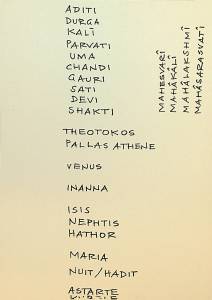 ADITI
DURGA
KALI
PARVATI
UMA
CHANDI
GAURI
SATI
DEVI
SHAKTI
MAHESVARÎ
MAHÂKÂLÎ
MAHÂLAKSHMÎ
MAHÂSARASVATÎ
THEOTOKOS
PALLAS ATHENE
VENUS
INANNA
ISIS
NEPHTIS
HATHOR
MARIA
NUIT/HADIT
ASTARTE